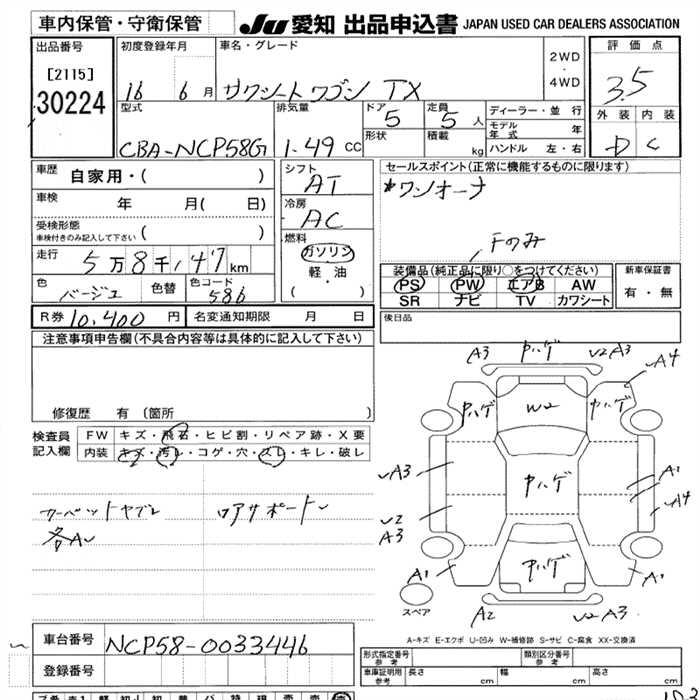 車内保管・守衛保管
JU 愛知 出品申込書 JAPAN USED CAR DEALERS ASSOCIATION
出品番号
[2115]
30224
初度登録年月
16 6 月
車名・グレード
サクシードワゴン TX
2WD
・
4WD
評価点
3.5
外装 内装
D C
型式
CBA-NCP58G
排気量
1.49 CC
ドア
5
定員
5 人
形状
積載
kg
ディーラー・並行
モデル年式 年
ハンドル 左・右
車歴
自家用・( )
車検
年 月( 日)
受検形態
車検付きのみ記入して下さい ( )
走行
5万8千147km
色
ベージュ
色替
色コード
586
R券 10,400 円
名変通知期限 月 日
シフト
AT
冷房
AC
燃料
ガソリン
軽・油
( )
セールスポイント(正常に機能するものに限ります)
*ワンオーナ
Fのみ
装備品(純正品に限り○をつけてください)
PS PW エアB AW
SR ナビ TV カワシート
新車保証書
有・無
後日品
注意事項申告欄(不具合内容等は具体的に記入して下さい)
修復歴 有 (箇所 )
検査員
記入欄
FW キズ・飛石・ヒビ割・リペア跡・X要
内装 キズ・汚レ・コゲ・穴・スレ・キレ・破レ
カーペットヤブレ
各A
ロアサポート
A3 ヤハゲ A3
A4
ヤハゲ W2 ヤハゲ
A3
ヤハゲ
A1
A4
A3
A1 ヤハゲ A1
スペア
A2 A3
A-キズ E-エクボ U-凹み W-補修跡 S-サビ C-腐食 XX-交換済
車台番号
NCP58-0033446
登録番号
形式指定番号
参考
類別区分番号
参考
車庫証明用
参考
長さ cm
幅 cm
高さ cm